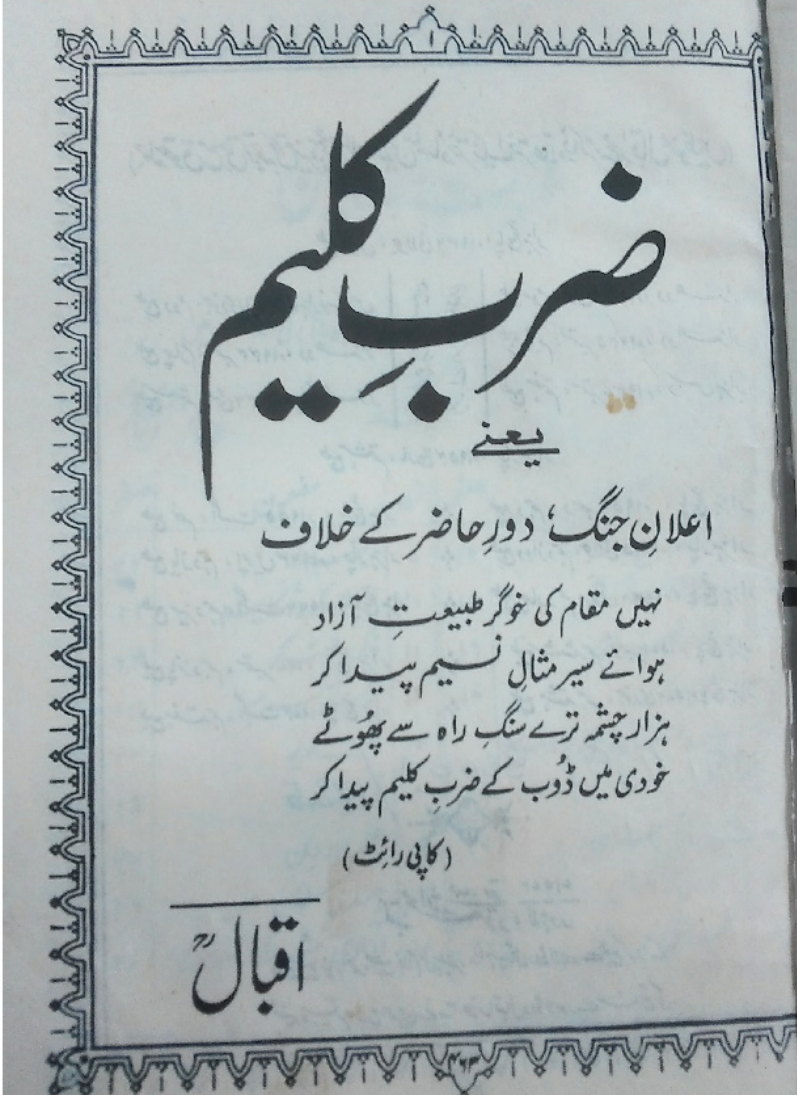 ۱
ضربِ کلیم
یعنے
اعلانِ جنگ، دورِ حاضر کے خلاف
نہیں مقام کی خوگر طبیعتِ آزاد
ہوائے سیر مثالِ نسیم پیدا کر
ہزار چشمہ ترے سنگِ راہ سے پھُوٹے
خودی میں ڈُوب کے ضربِ کلیم پیدا کر
(کاپی رائٹ)
اقبالؒ
۴۶۳